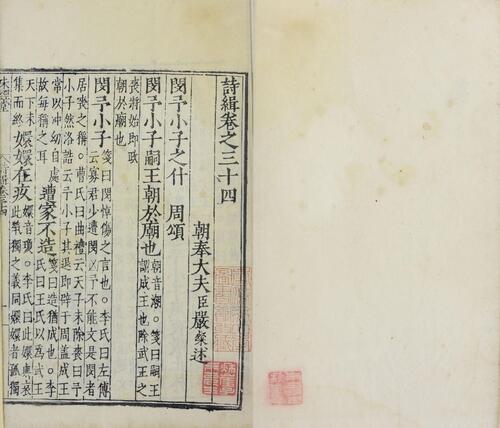 詩緝卷之三十四
朝奉大夫臣嚴粲述
閔予小子之什　周頌
閔予小子嗣王朝於廟也朝音潮。箋曰嗣王謂成王也除武王之
喪將始即政
朝於廟也
閔予小子箋曰閔悼傷之言也。李氏曰左傳
云寡君少遭閔凶予不能文是閔者
居喪之稱。曹氏曰曲禮云天子未除喪曰予
小子然洛誥云予小子其退即辟于周蓋成王
常以沖幼自處
故每稱之耳遭家不造箋曰造猶成也。李
氏曰王氏以為武王
天下未
集而終嬛嬛在疚嬛音瓊。李氏曰此嬛與哀
此煢獨之義同嬛嬛者孤獨